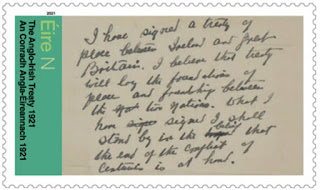 2021
Éire N
The Anglo-Irish Treaty 1921
An Conradh Angla-Éireannach 1921
I have signed a treaty of
peace between Ireland and great
Britain. I believe that treaty
will lay the foundations of
peace and friendship between
the two Nations. What I
have signed I shall
stand by in the belief that
the end of the conflict of
centuries is at hand.